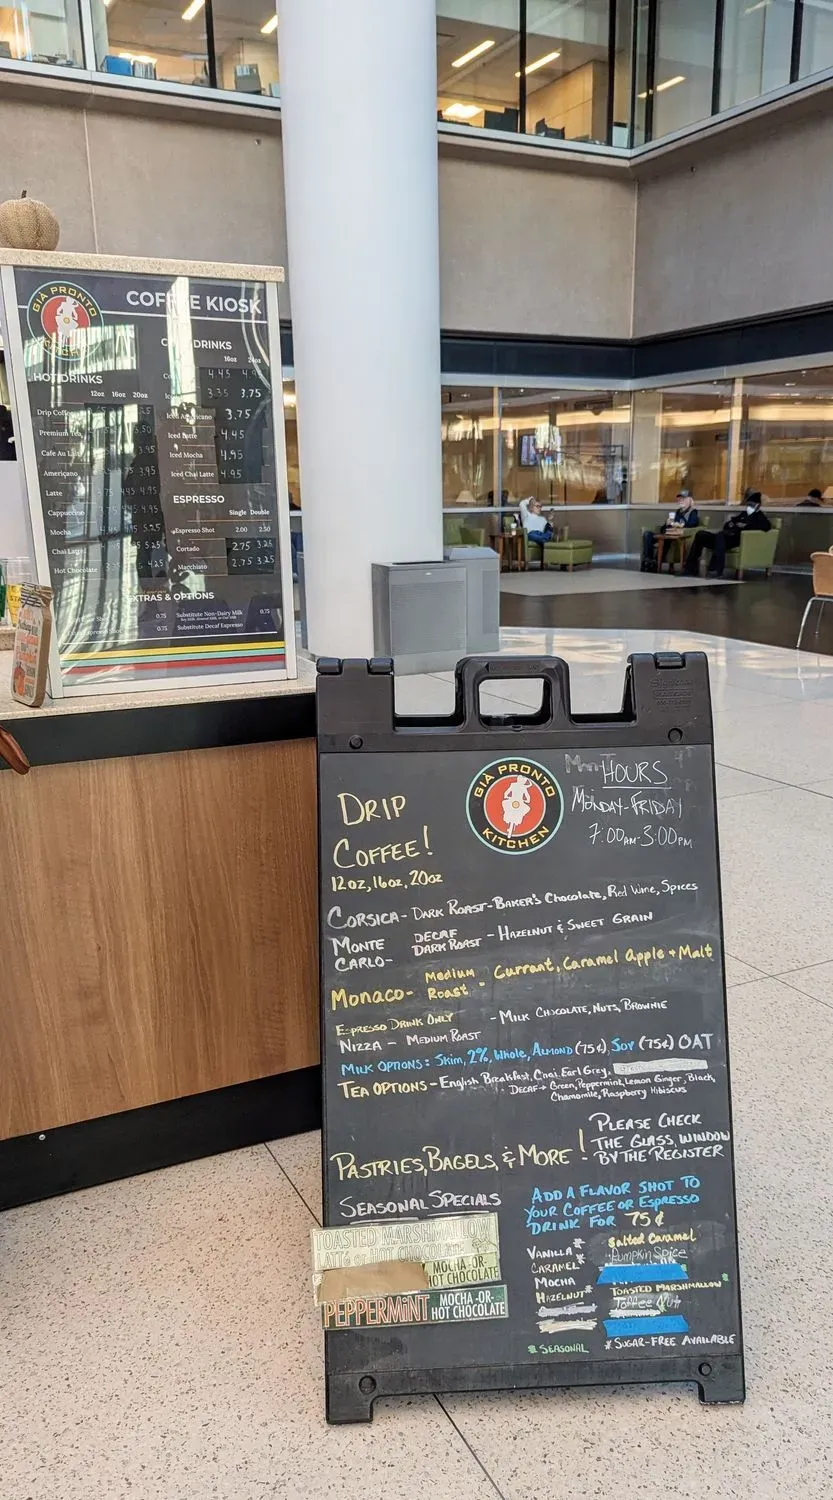 GIÀ PRONTO
KITCHEN
COFFEE KIOSK
HOT DRINKS
12oz 16oz 20oz
Drip Coffee
Premium Tea
Cafe Au Lait
Americano
3.95
Latte
4.45 4.95
Cappuccino
4.95
Mocha
5.25
Chai Latte
5.25
Hot Chocolate
4.25
DRINKS
16oz
4.45
3.35 3.75
Iced Americano 3.75
Iced Latte 4.45
Iced Mocha 4.95
Iced Chai Latte 4.95
ESPRESSO
Single Double
Espresso Shot 2.00 2.50
Cortado 2.75 3.25
Macchiato 2.75 3.25
EXTRAS & OPTIONS
0.75
Substitute Non-Dairy Milk 0.75
0.75
Substitute Decaf Espresso
GIÀ PRONTO
KITCHEN
HOURS
MONDAY-FRIDAY
7:00AM-3:00PM
DRIP
COFFEE!
12oz, 16oz, 20oz
CORSICA- DARK ROAST-BAKER'S CHOCOLATE, Red Wine, Spices
MONTE CARLO- DECAF DARK ROAST - HAZELNUT & SWEET GRAIN
Monaco- Medium Roast - Currant, Caramel Apple + Malt
ESPRESSO DRINK ONLY
NIZZA - MEDIUM ROAST - MILK CHOCOLATE, NUTS, BROWNIE
MILK OPTIONS: Skim, 2%, Whole, ALMOND (75¢), SOY (75¢) OAT
TEA OPTIONS - English Breakfast, Chai, Earl Grey,
DECAF → Green, Peppermint, Lemon Ginger, Black,
Chamomile, Raspberry Hibiscus
PASTRIES, BAGELS, & MORE!
PLEASE CHECK
THE GLASS WINDOW
BY THE REGISTER
SEASONAL SPECIALS
TOASTED MARSHMALLOW
HOT CHOCOLATE
MOCHA-OR-
HOT CHOCOLATE
PEPPERMINT MOCHA-OR-
HOT CHOCOLATE
ADD A FLAVOR SHOT TO
YOUR COFFEE OR ESPRESSO
DRINK FOR 75¢
VANILLA*
CARAMEL*
MOCHA
HAZELNUT*
Salted Caramel
Pumpkin Spice
TOASTED MARSHMALLOW*
Toffee Nut
*SEASONAL
*SUGAR-FREE AVAILABLE